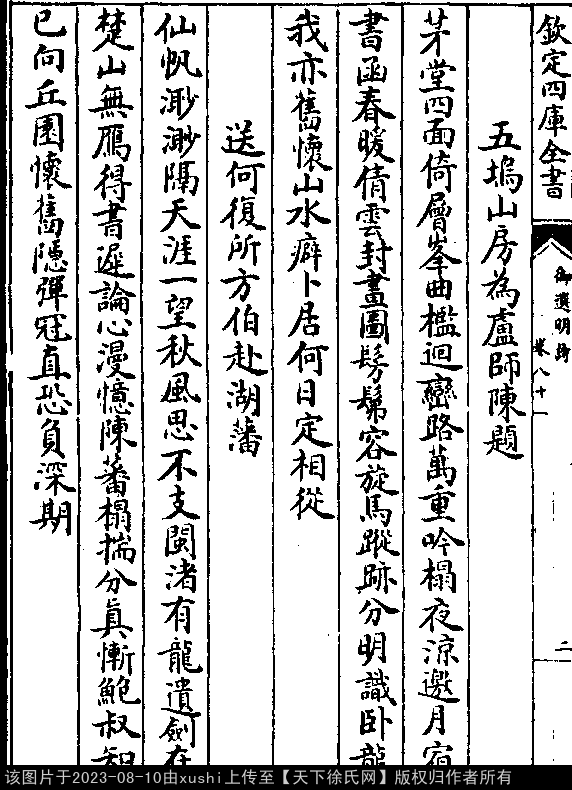 欽定四庫全書
御選明詩
卷八十一
二
五塢山房為盧師陳題
茅堂四面倚層峯曲檻迴巒路萬重吟榻夜涼邀月宿
書函春暖倩雲封畫圖髣髴容旋馬蹤跡分明識卧龍
我亦舊懷山水癖卜居何日定相從
送何復所方伯赴湖藩
仙帆渺渺隔天涯一望秋風思不支閩渚有龍遺劍在
楚山無鴈得書遲論心漫憶陳蕃榻揣分真慚鮑叔知
已向丘園懷舊隱彈冠直恐負深期
该图片于2023-08-10由xushi上传至【天下徐氏网】版权归作者所有